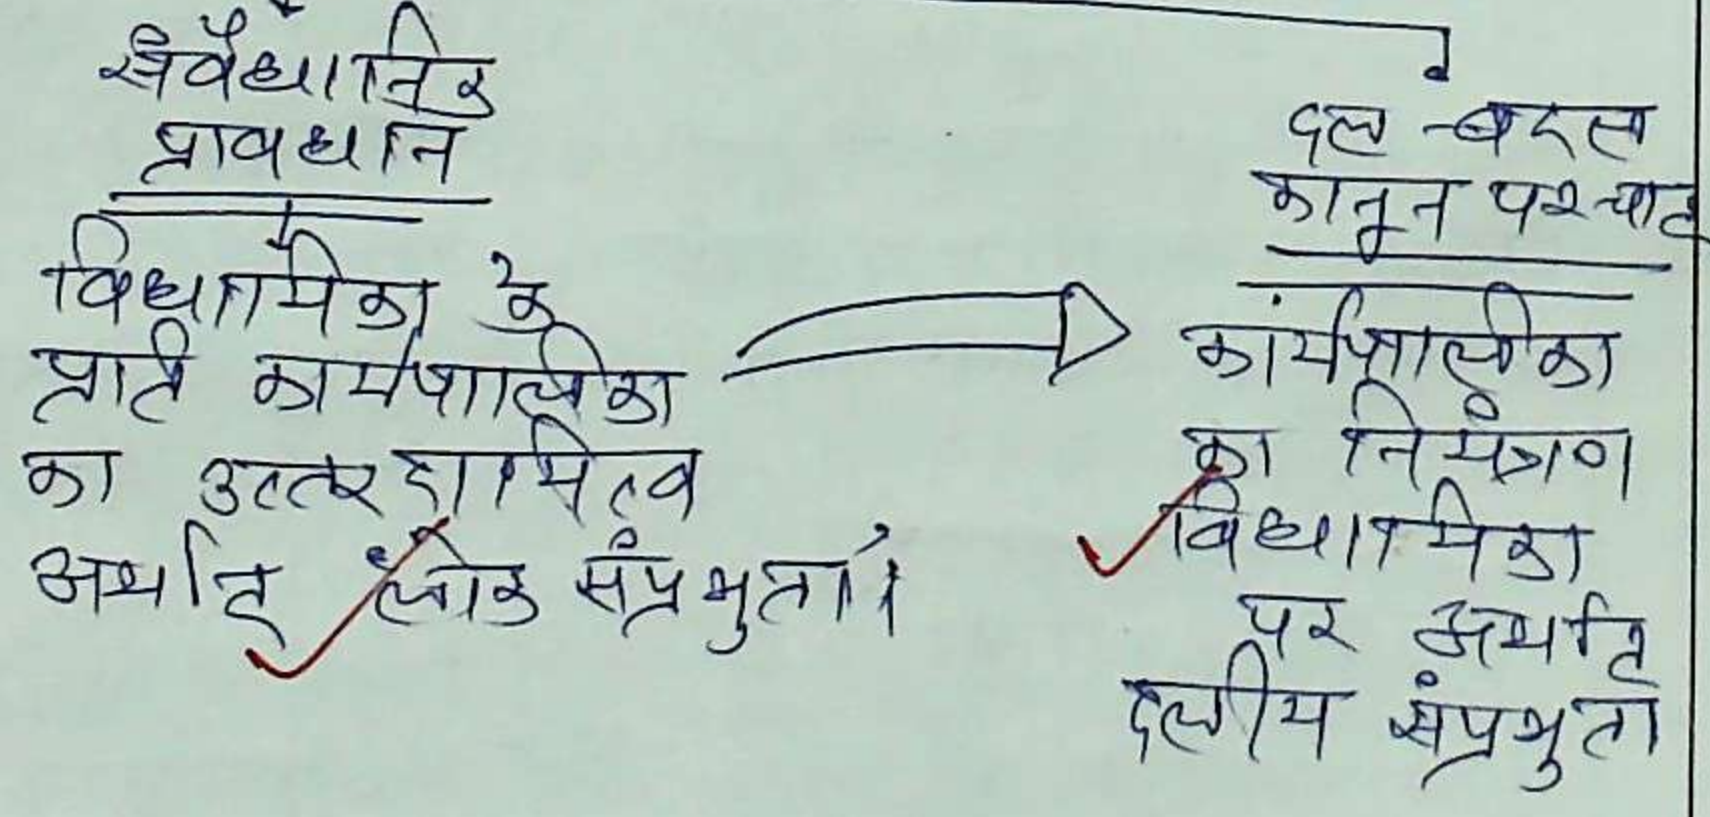 संवैधानिक
प्रावधान
विधायिका के
प्रति कार्यपालिका
का उत्तरदायित्व
अर्थात् लोक संप्रभुता।
दल-बदल
कानून पश्चात
कार्यपालिका
का नियंत्रण
विधायिका
पर अर्थात्
दलीय संप्रभुता